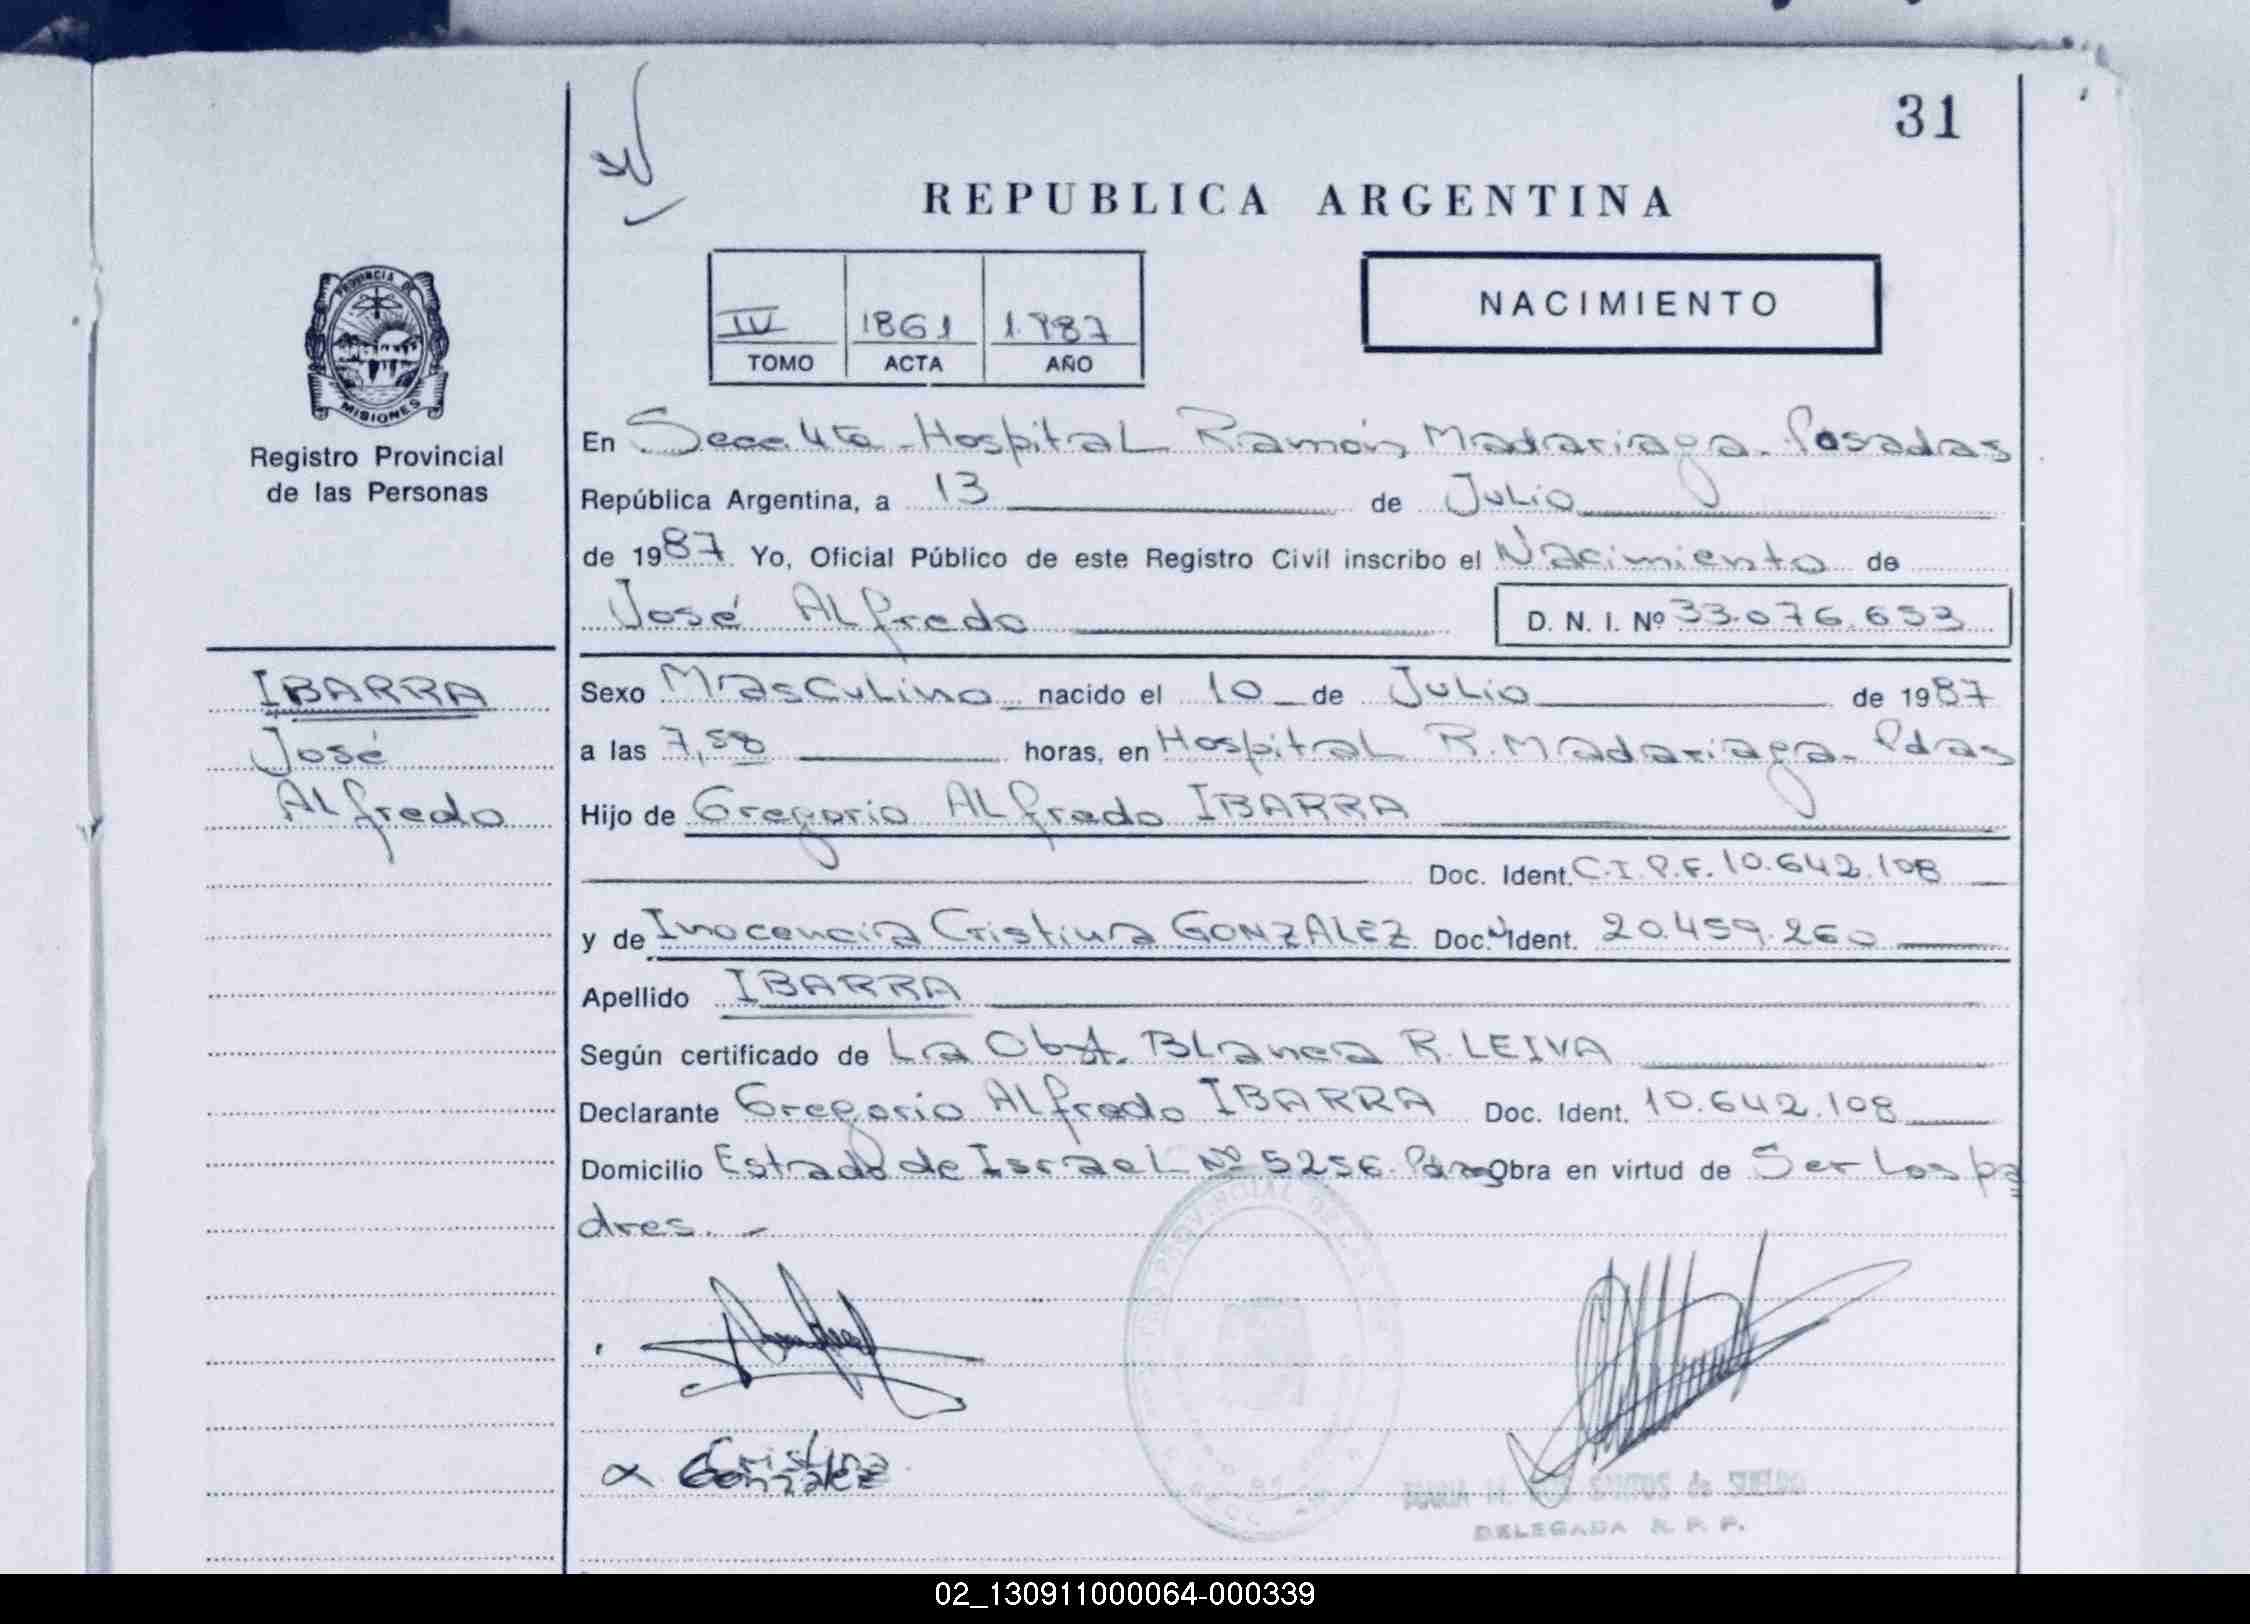 31
REPUBLICA ARGENTINA
PROVINCIA DE
MISIONES
Registro Provincial
de las Personas
IV 1861 1.987
TOMO ACTA AÑO
NACIMIENTO
En Secc. 4ta - Hospital Ramón Madariaga - Posadas
República Argentina, a 13 de Julio
de 1987 Yo, Oficial Público de este Registro Civil inscribo el Nacimiento de
José Alfredo D. N. I. Nº 33.076.653
IBARRA
José
Alfredo
Sexo Masculino nacido el 10 de Julio de 1987
a las 7,58 horas, en Hospital R. Madariaga - Pdas
Hijo de Gregorio Alfredo IBARRA
Doc. Ident. C.I.P.F. 10.642.108
y de Inocencia Cristina GONZALEZ Doc. Ident. 20.459.260
Apellido IBARRA
Según certificado de La Obst. Blanca R. LEIVA
Declarante Gregorio Alfredo IBARRA Doc. Ident. 10.642.108
Domicilio Estado de Israel Nº 5256. Pdas Obra en virtud de Ser Los pa
dres. -
Cristina
Gonzalez
MARIA M. DOS SANTOS de SUELDO
DELEGADA R. P. P.
02_130911000064-000339